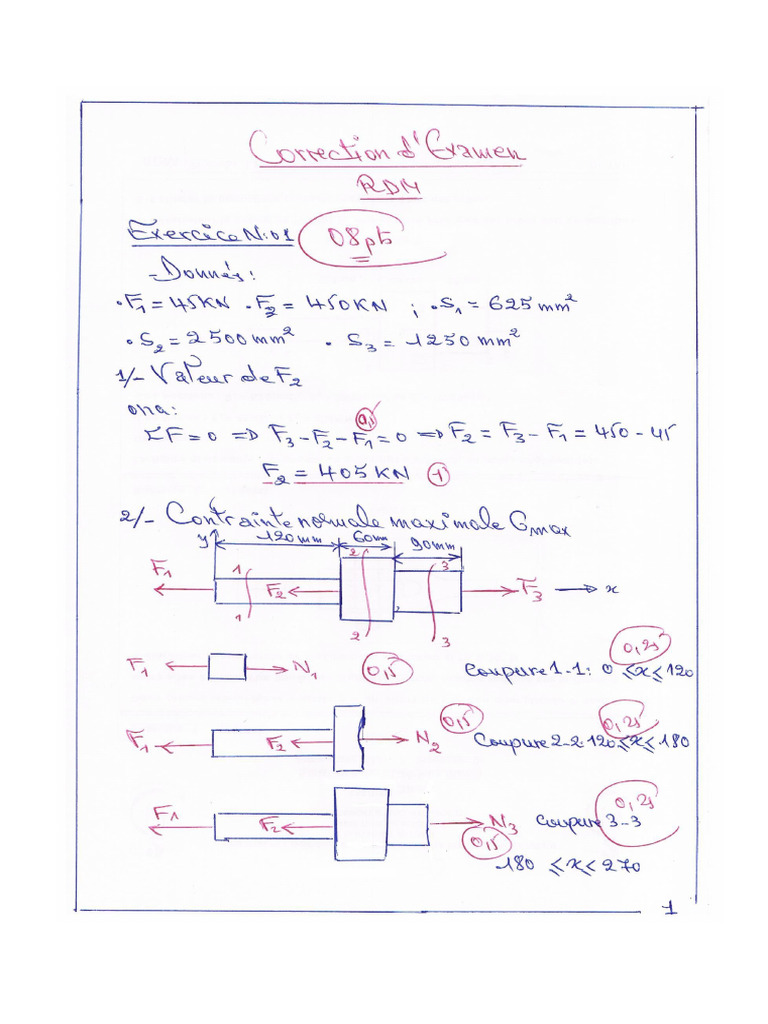 Correction d'Examen
RDM
Exercice N:01 08pts
-Donnés:
•F1=45KN •F2=450KN ; •S1=625mm²
•S2=2500mm² • S3=1250mm²
1/- Valeur de F2
ona:
0,5
ΣF=0 => F3-F2-F1=0 => F2=F3-F1=450-45
F2=405KN 1
2/- Contrainte normale maximale Gmax
y 120mm 60mm 90mm
F1 1 F2 2 3 F3 x
1 2 3
F1 N1 0,5 Coupure 1-1: 0≤x≤120 0,25
F1 F2 N2 0,5 Coupure 2-2 120≤x≤180 0,25
F1 F2 N3 0,5 Coupure 3-3 0,25
180≤x≤270
1